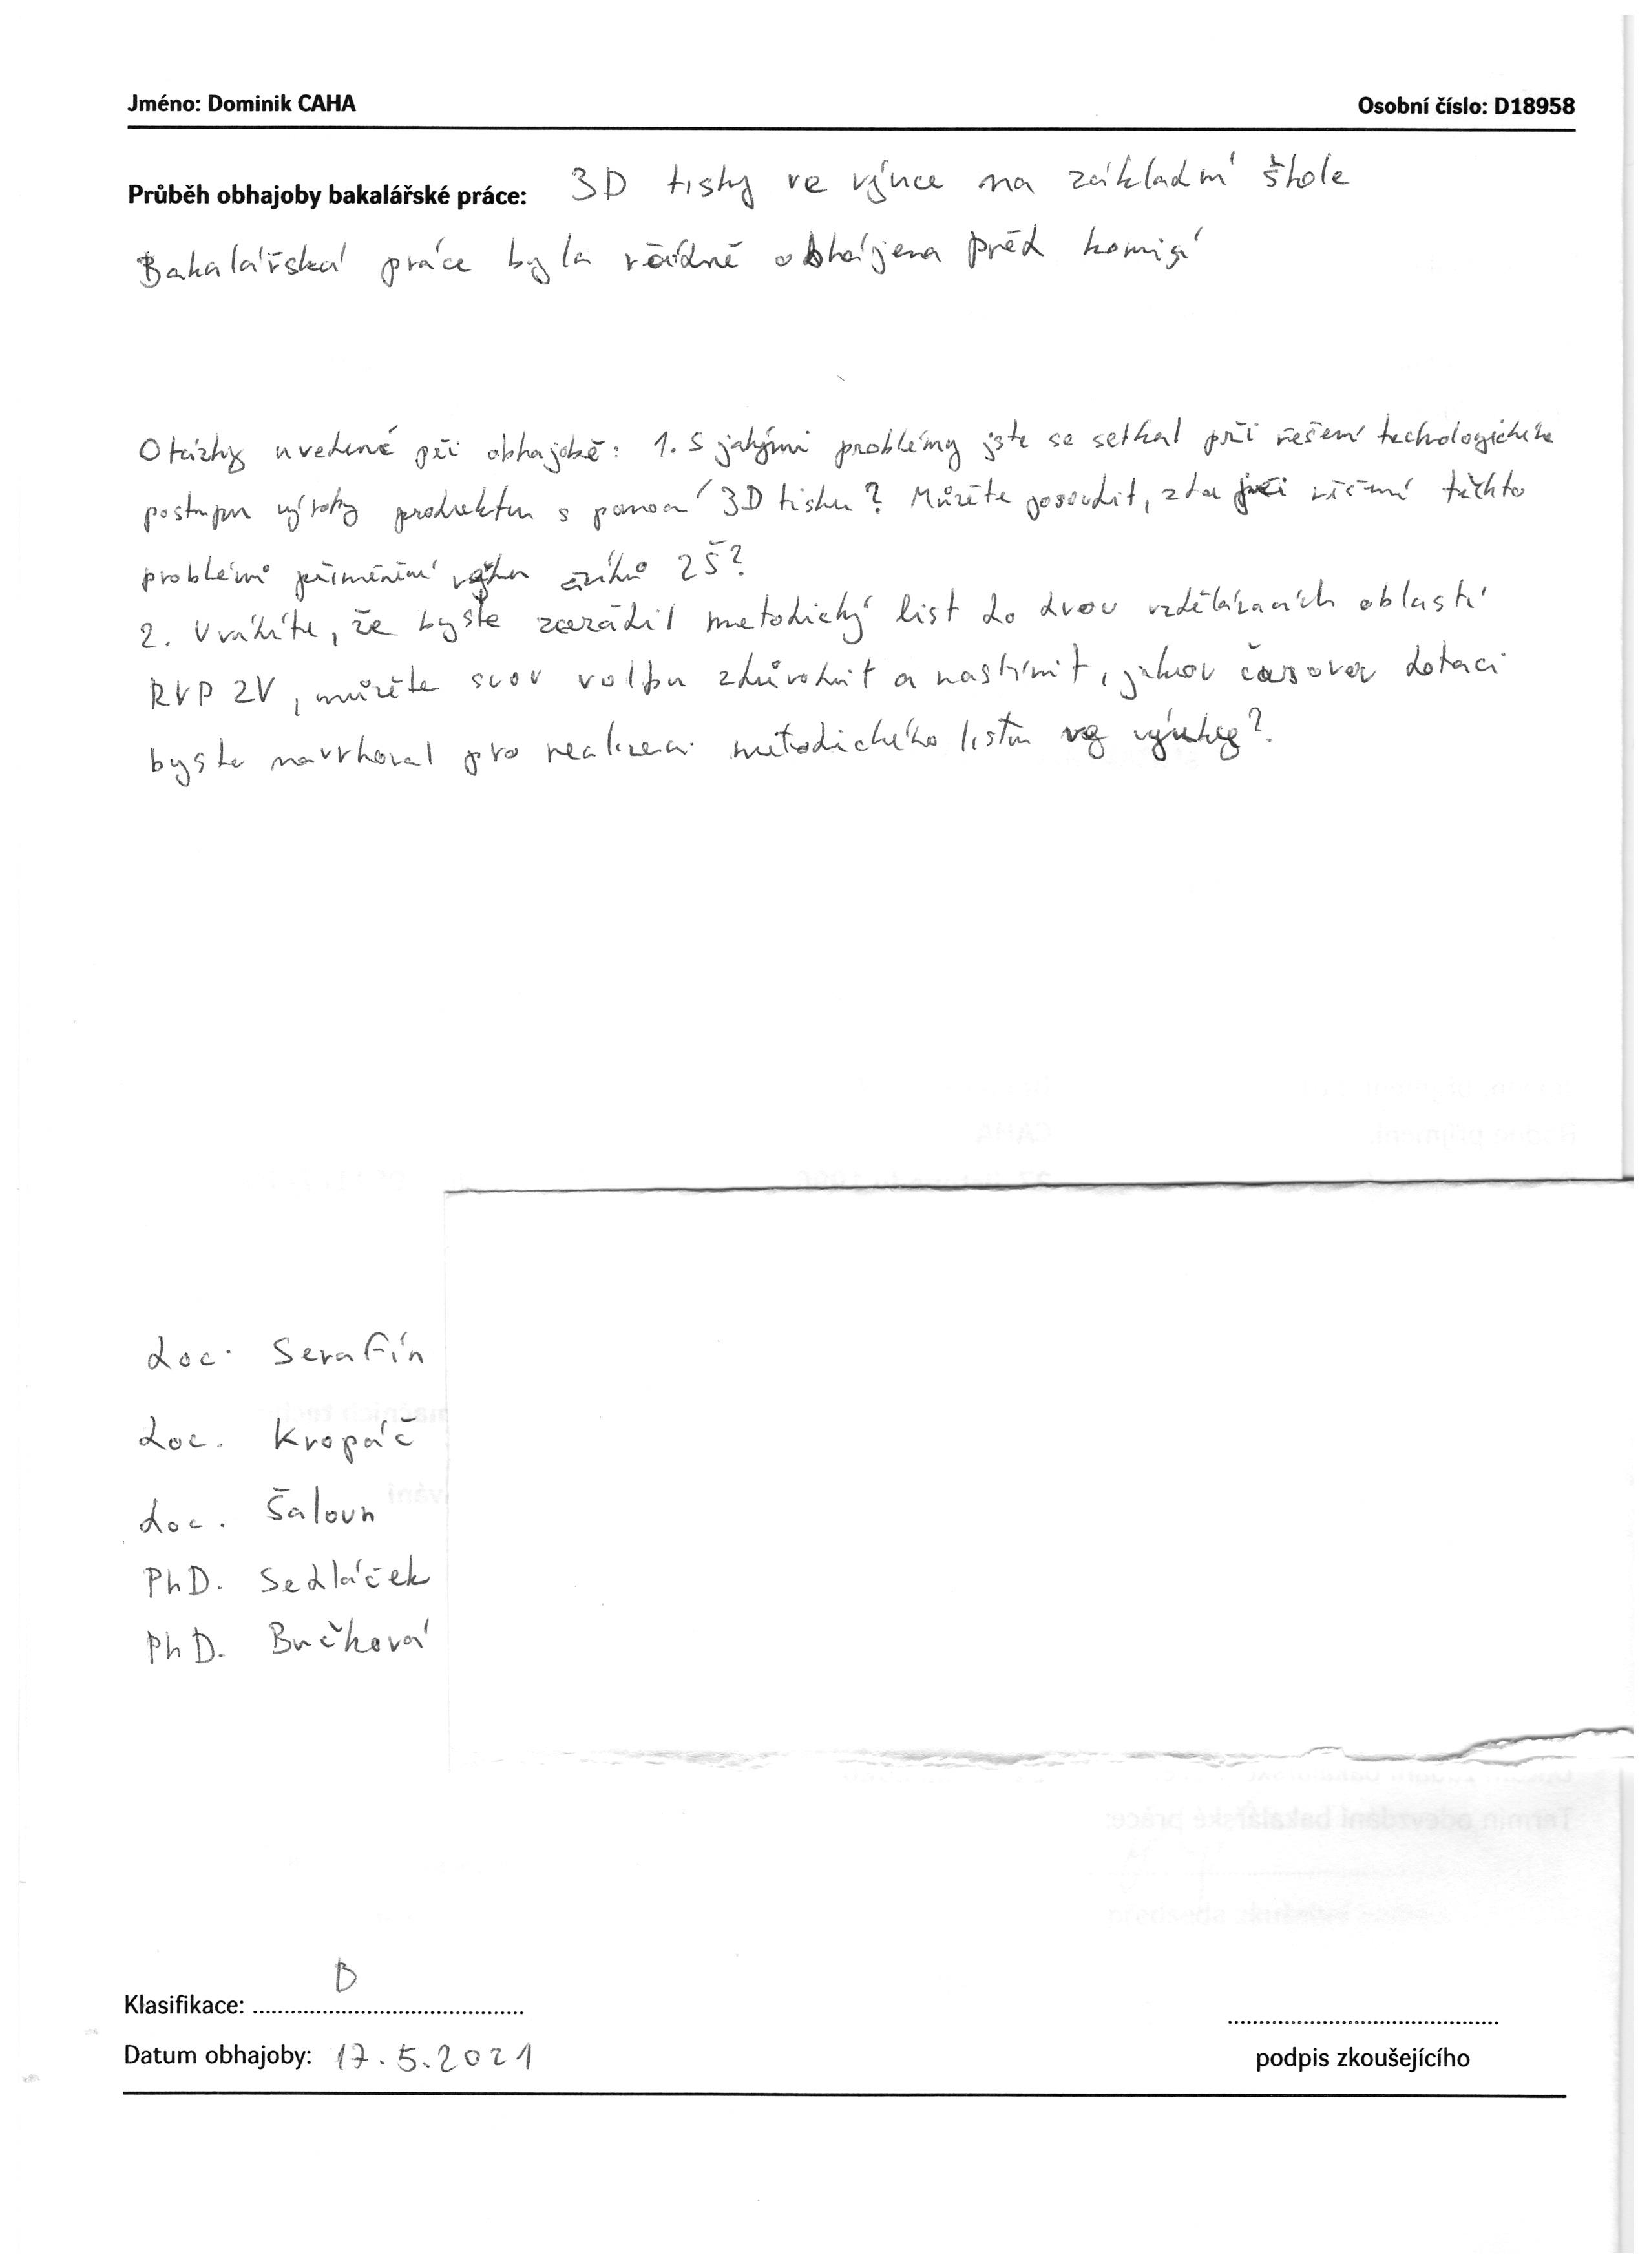 Jméno: Dominik CAHA
Osobní číslo: D18958
Průběh obhajoby bakalářské práce: 3D tisky ve výuce na základní škole
Bakalářská práce byla řádně obhájena před komisí
Otázky uvedené při obhajobě: 1. S jakými problémy jste se setkal při řešení technologického
postupu výroby produktu s pomocí 3D tisku? Můžete posoudit, zda je řešení těchto
problémů přiměřené věku žáků ZŠ?
2. Uvádíte, že byste zařadil metodický list do dvou vzdělávacích oblastí
RVP ZV, můžete svou volbu zdůvodnit a nastínit, jakou časovou dotaci
byste navrhoval pro realizaci metodického listu ve výuce?
doc. Serafín
doc. Kropáč
doc. Šaloun
PhD. Sedláček
PhD. Bučková
Klasifikace: B
Datum obhajoby: 17.5.2021
podpis zkoušejícího